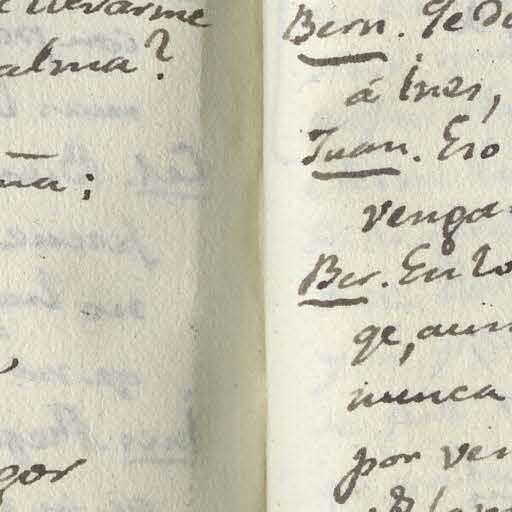 llevarme
alma?
ma;
gor
Bern. Te da
á Ines,
Juan. Eso
venga
Ber. En lo
ge, aun
nunca
por ven